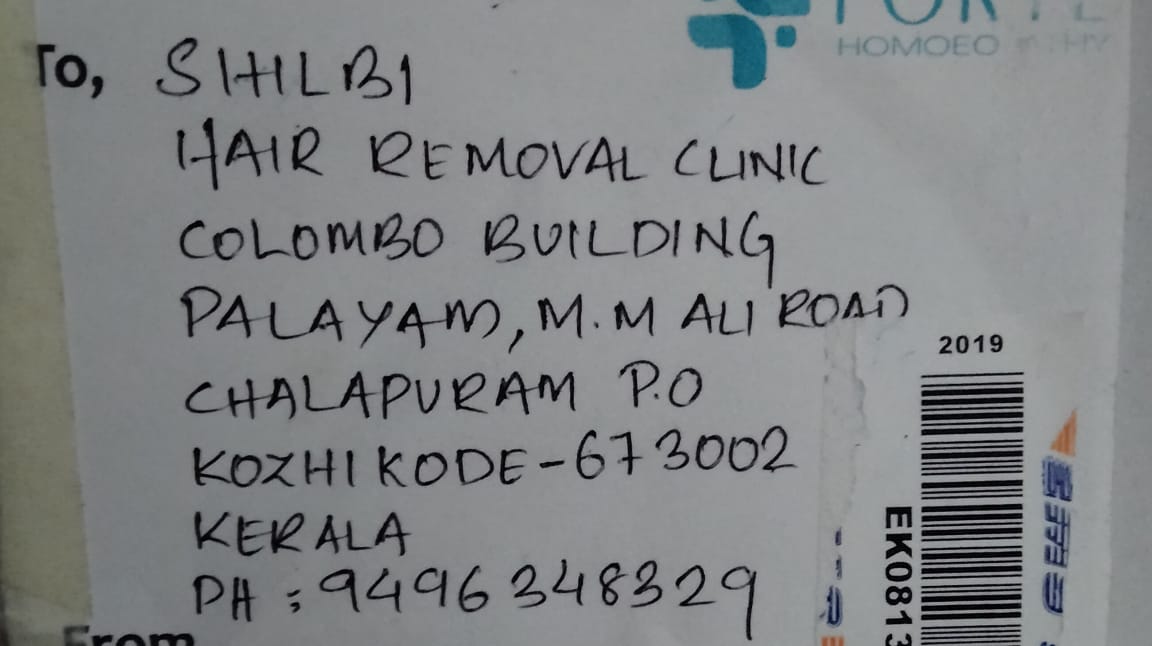 HOMOEO
To, SHILBI
HAIR REMOVAL CLINIC
COLOMBO BUILDING
PALAYAM, M.M ALI ROAD
CHALAPURAM P.O
KOZHIKODE-673002
KERALA
PH : 9496348329
From
2019
EK0813